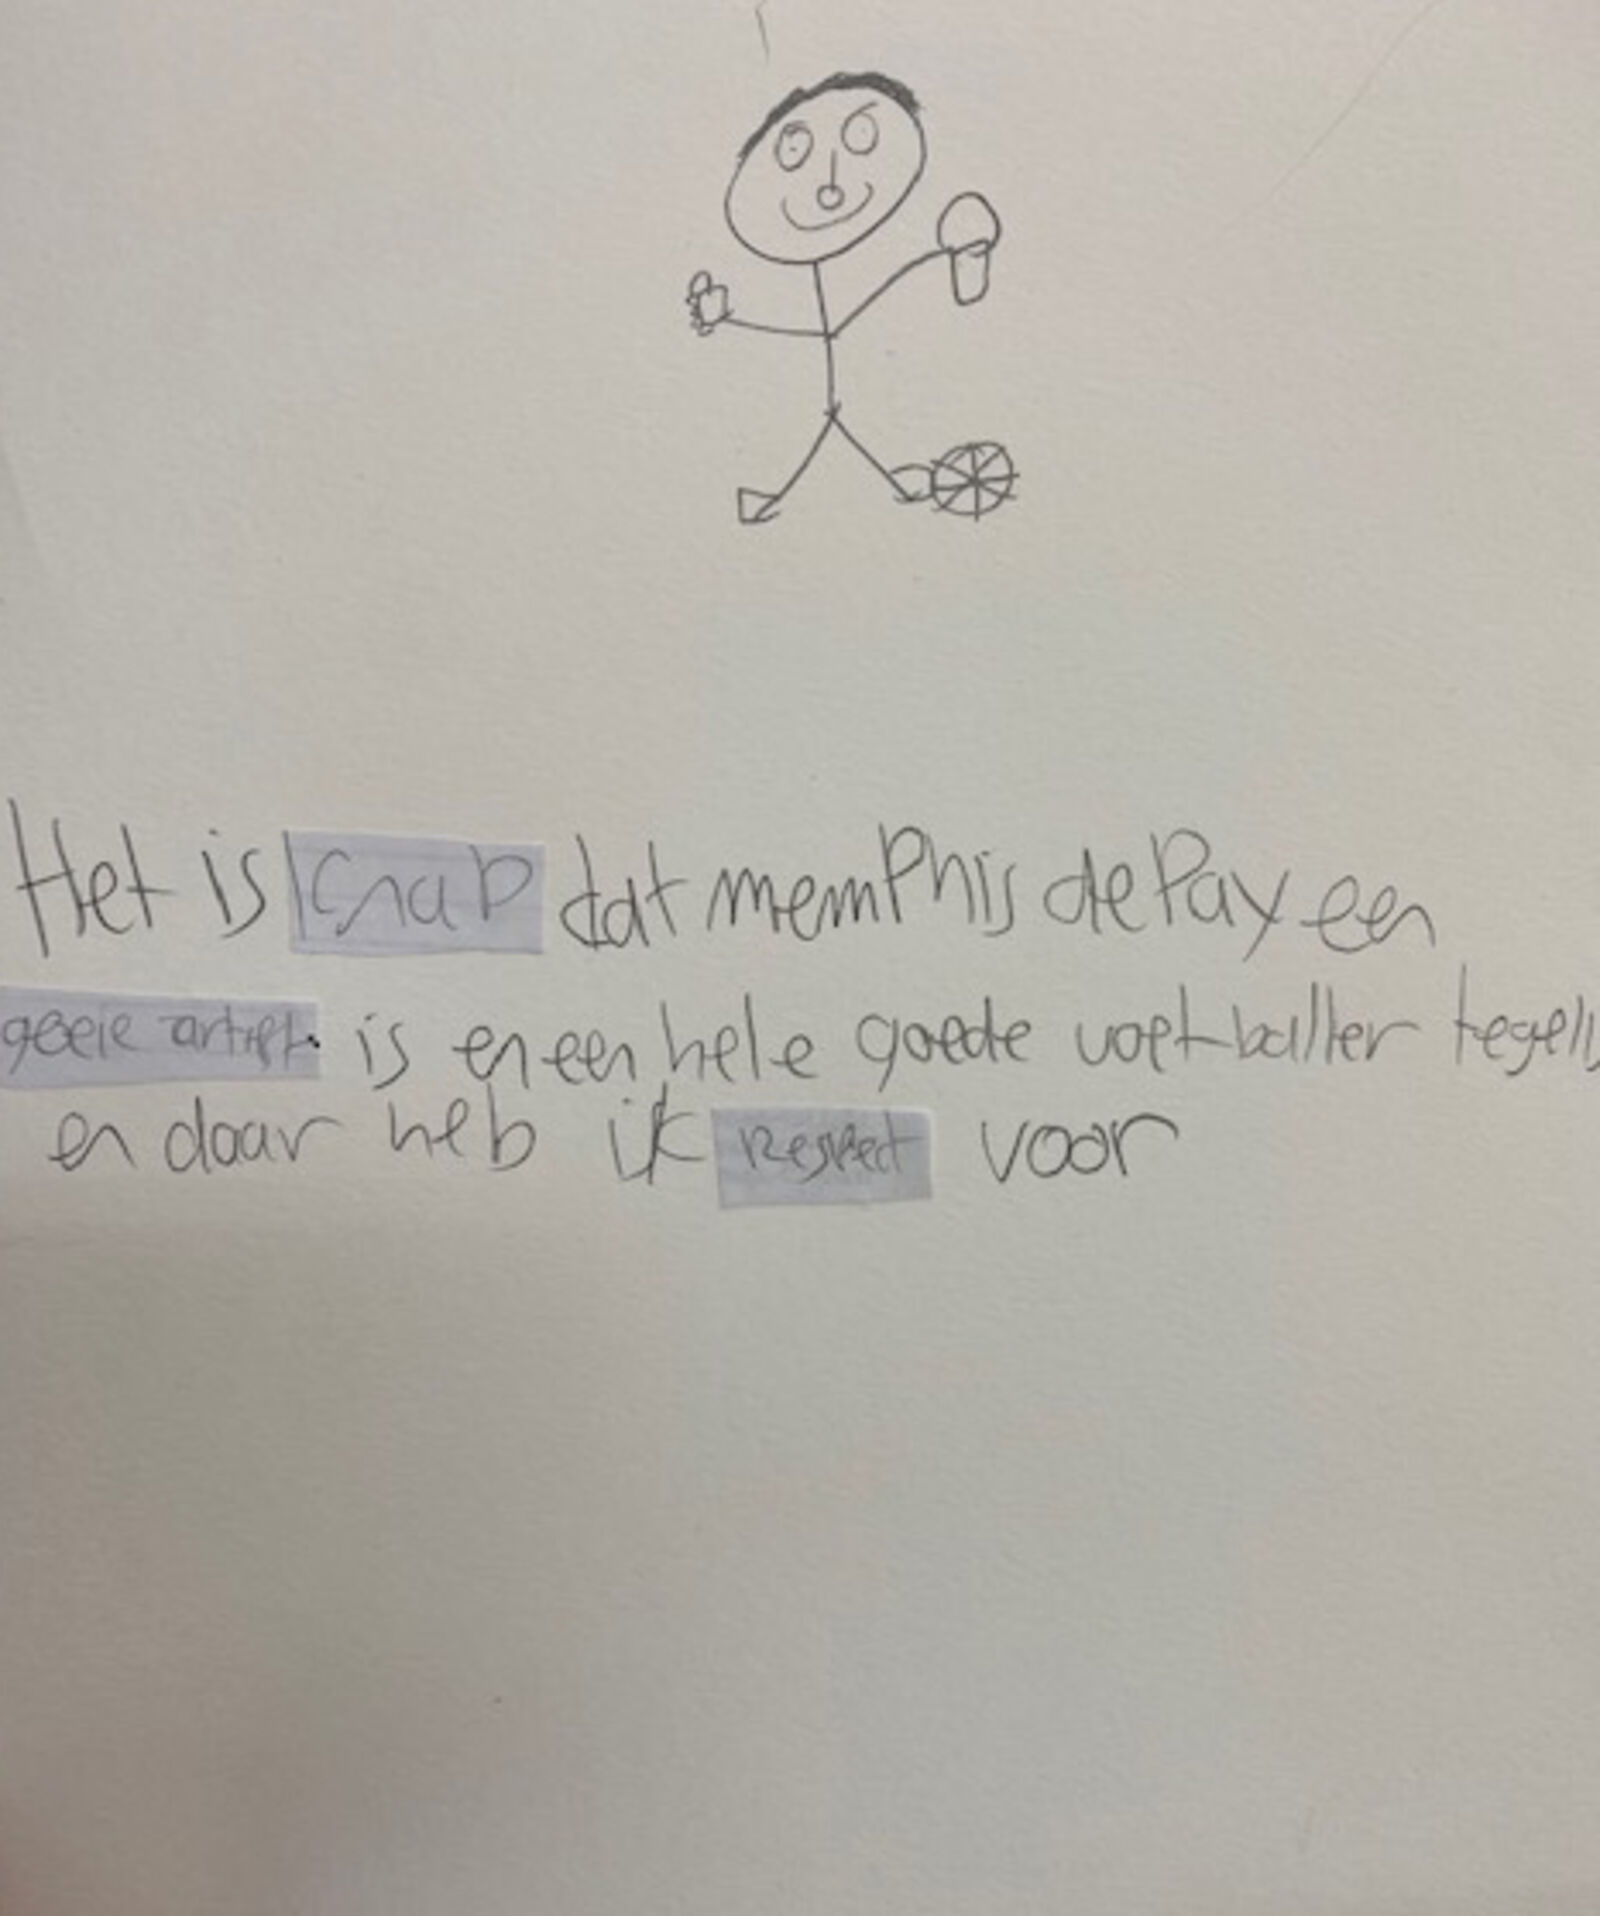 Het is knap dat memPhis dePay een
goeie artiest. is en een hele goede voetballer tegelij
en daar heb ik Respect voor